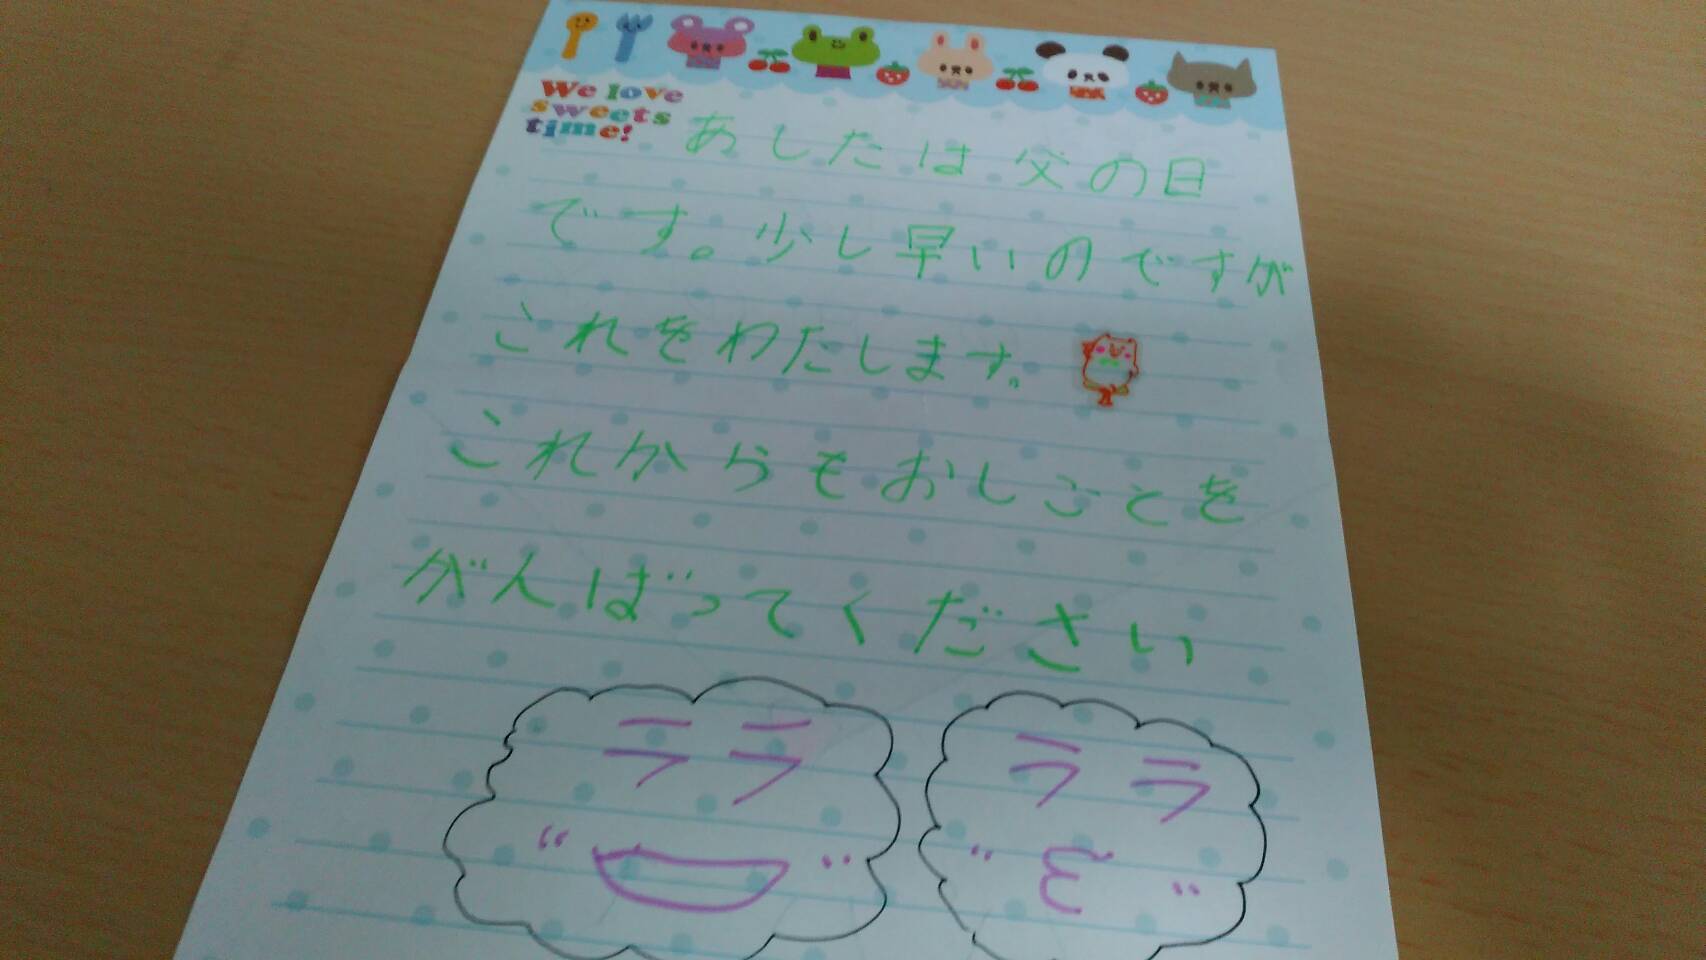 We love
sweets
time!
あしたは父の日
です。少し早いのですが
これをわたします。
これからもおしごとを
がんばってください
ララ
ララ